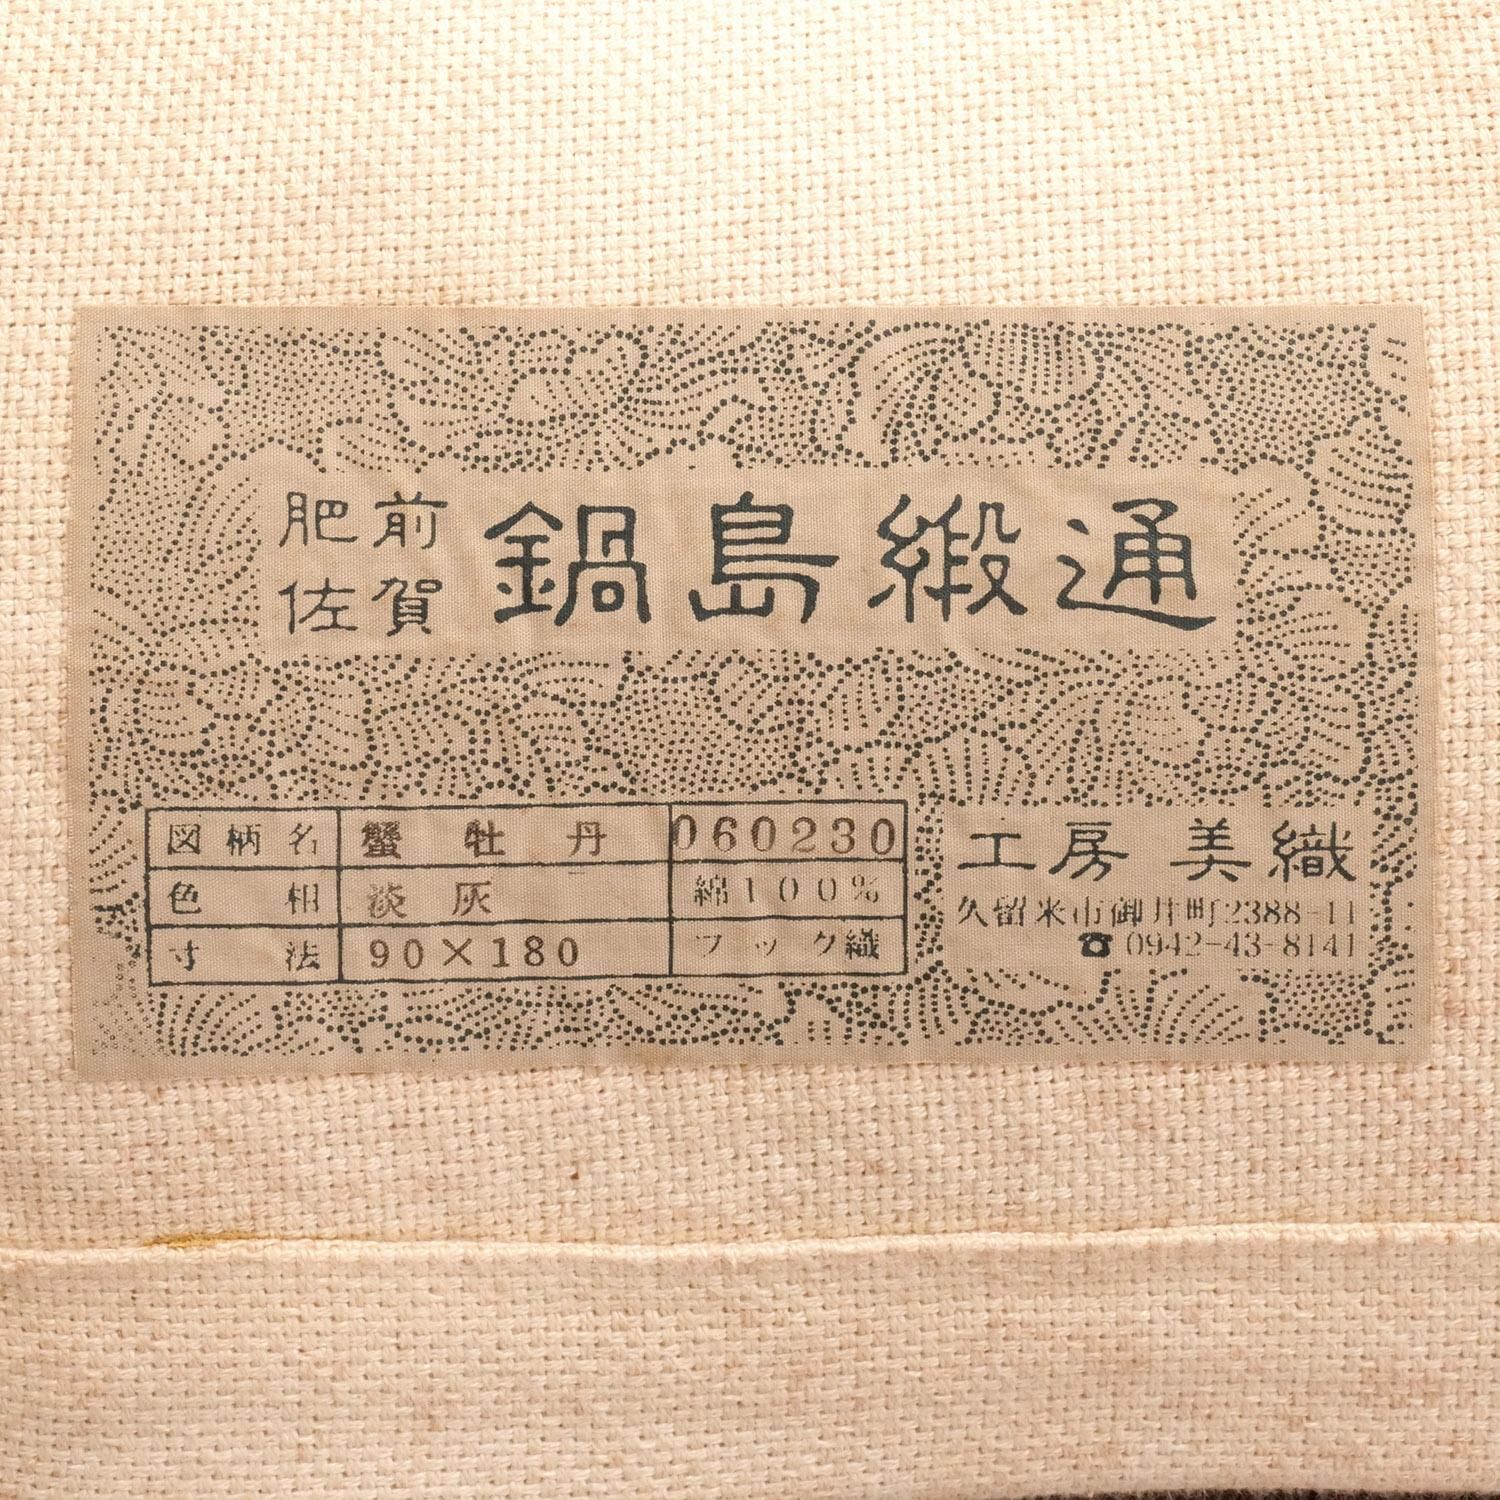 肥前
佐賀
鍋島緞通
図柄名 蟹牡丹 060230
色相 淡灰 綿100%
寸法 90×180 フック織
工房 美織
久留米市御井町2388-11
☎0942-43-8141